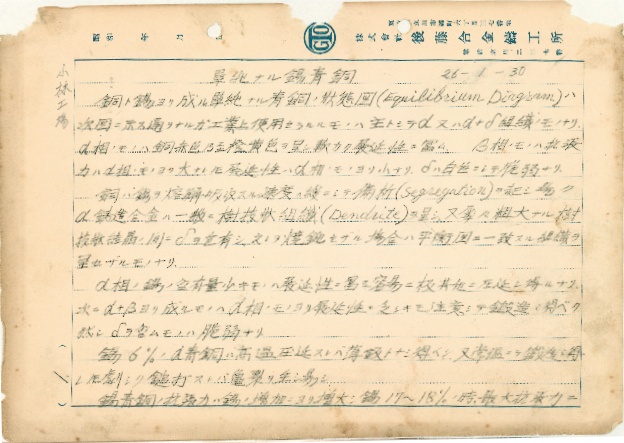 昭和 年 月
GTC
株式會社 後藤合金鑄工所
小林工場
單純ナル錫青銅 26-1-30
銅ト錫ヨリ成ル單純ナル青銅ノ狀態図(Equilibrium Diagram)ハ
次図ニ示ス通リナルガ工業上使用セラルルモノハ主トシテα又ハα+δ組織ノモノナリ
α相ノモノハ銅赤色乃至橙黄色ヲ呈シ軟カク展延性ニ富ム β相ノモノハ抗張
力ハα相ノモノヨリ大ナルモ展延性ハα相ノモノヨリ小ナリ、δハ白色ニシテ脆弱ナリ、
銅ハ錫ヲ熔融 速度ハ緩ニシテ偏析(Segregation)ヲ起シ易ク
α鑄造合金ハ一般ニ樹枝狀組織(Dendlite)ヲ呈シ又 粗大ナル樹
枝狀結晶ノ間ニδヲ含有シ 燒鈍セザル場合ハ平衡図ニ一致スル組織ヲ
呈セザルモノナリ、
α相ノ錫ノ含有量少キモノハ展延性ニ富ミ容易ニ板其他ニ圧延シ得ルナリ、
次ニα+βヨリ成ルモノハα相ノモノヨリ展延性ニ乏シキモ注意シテ鍛造シ得ベク
然シδヲ含ムモノハ脆弱ナリ
錫6%ノα青銅ハ高温圧延スレバ薄鈑トナシ得ベシ、又常温ニテ
シ 劇シク鎚打スレバ龜裂ヲ生ジ易シ
錫青銅ノ抗張力ハ錫ノ増加ニヨリ増大シ錫17〜18%ノ時最大抗張力ニ